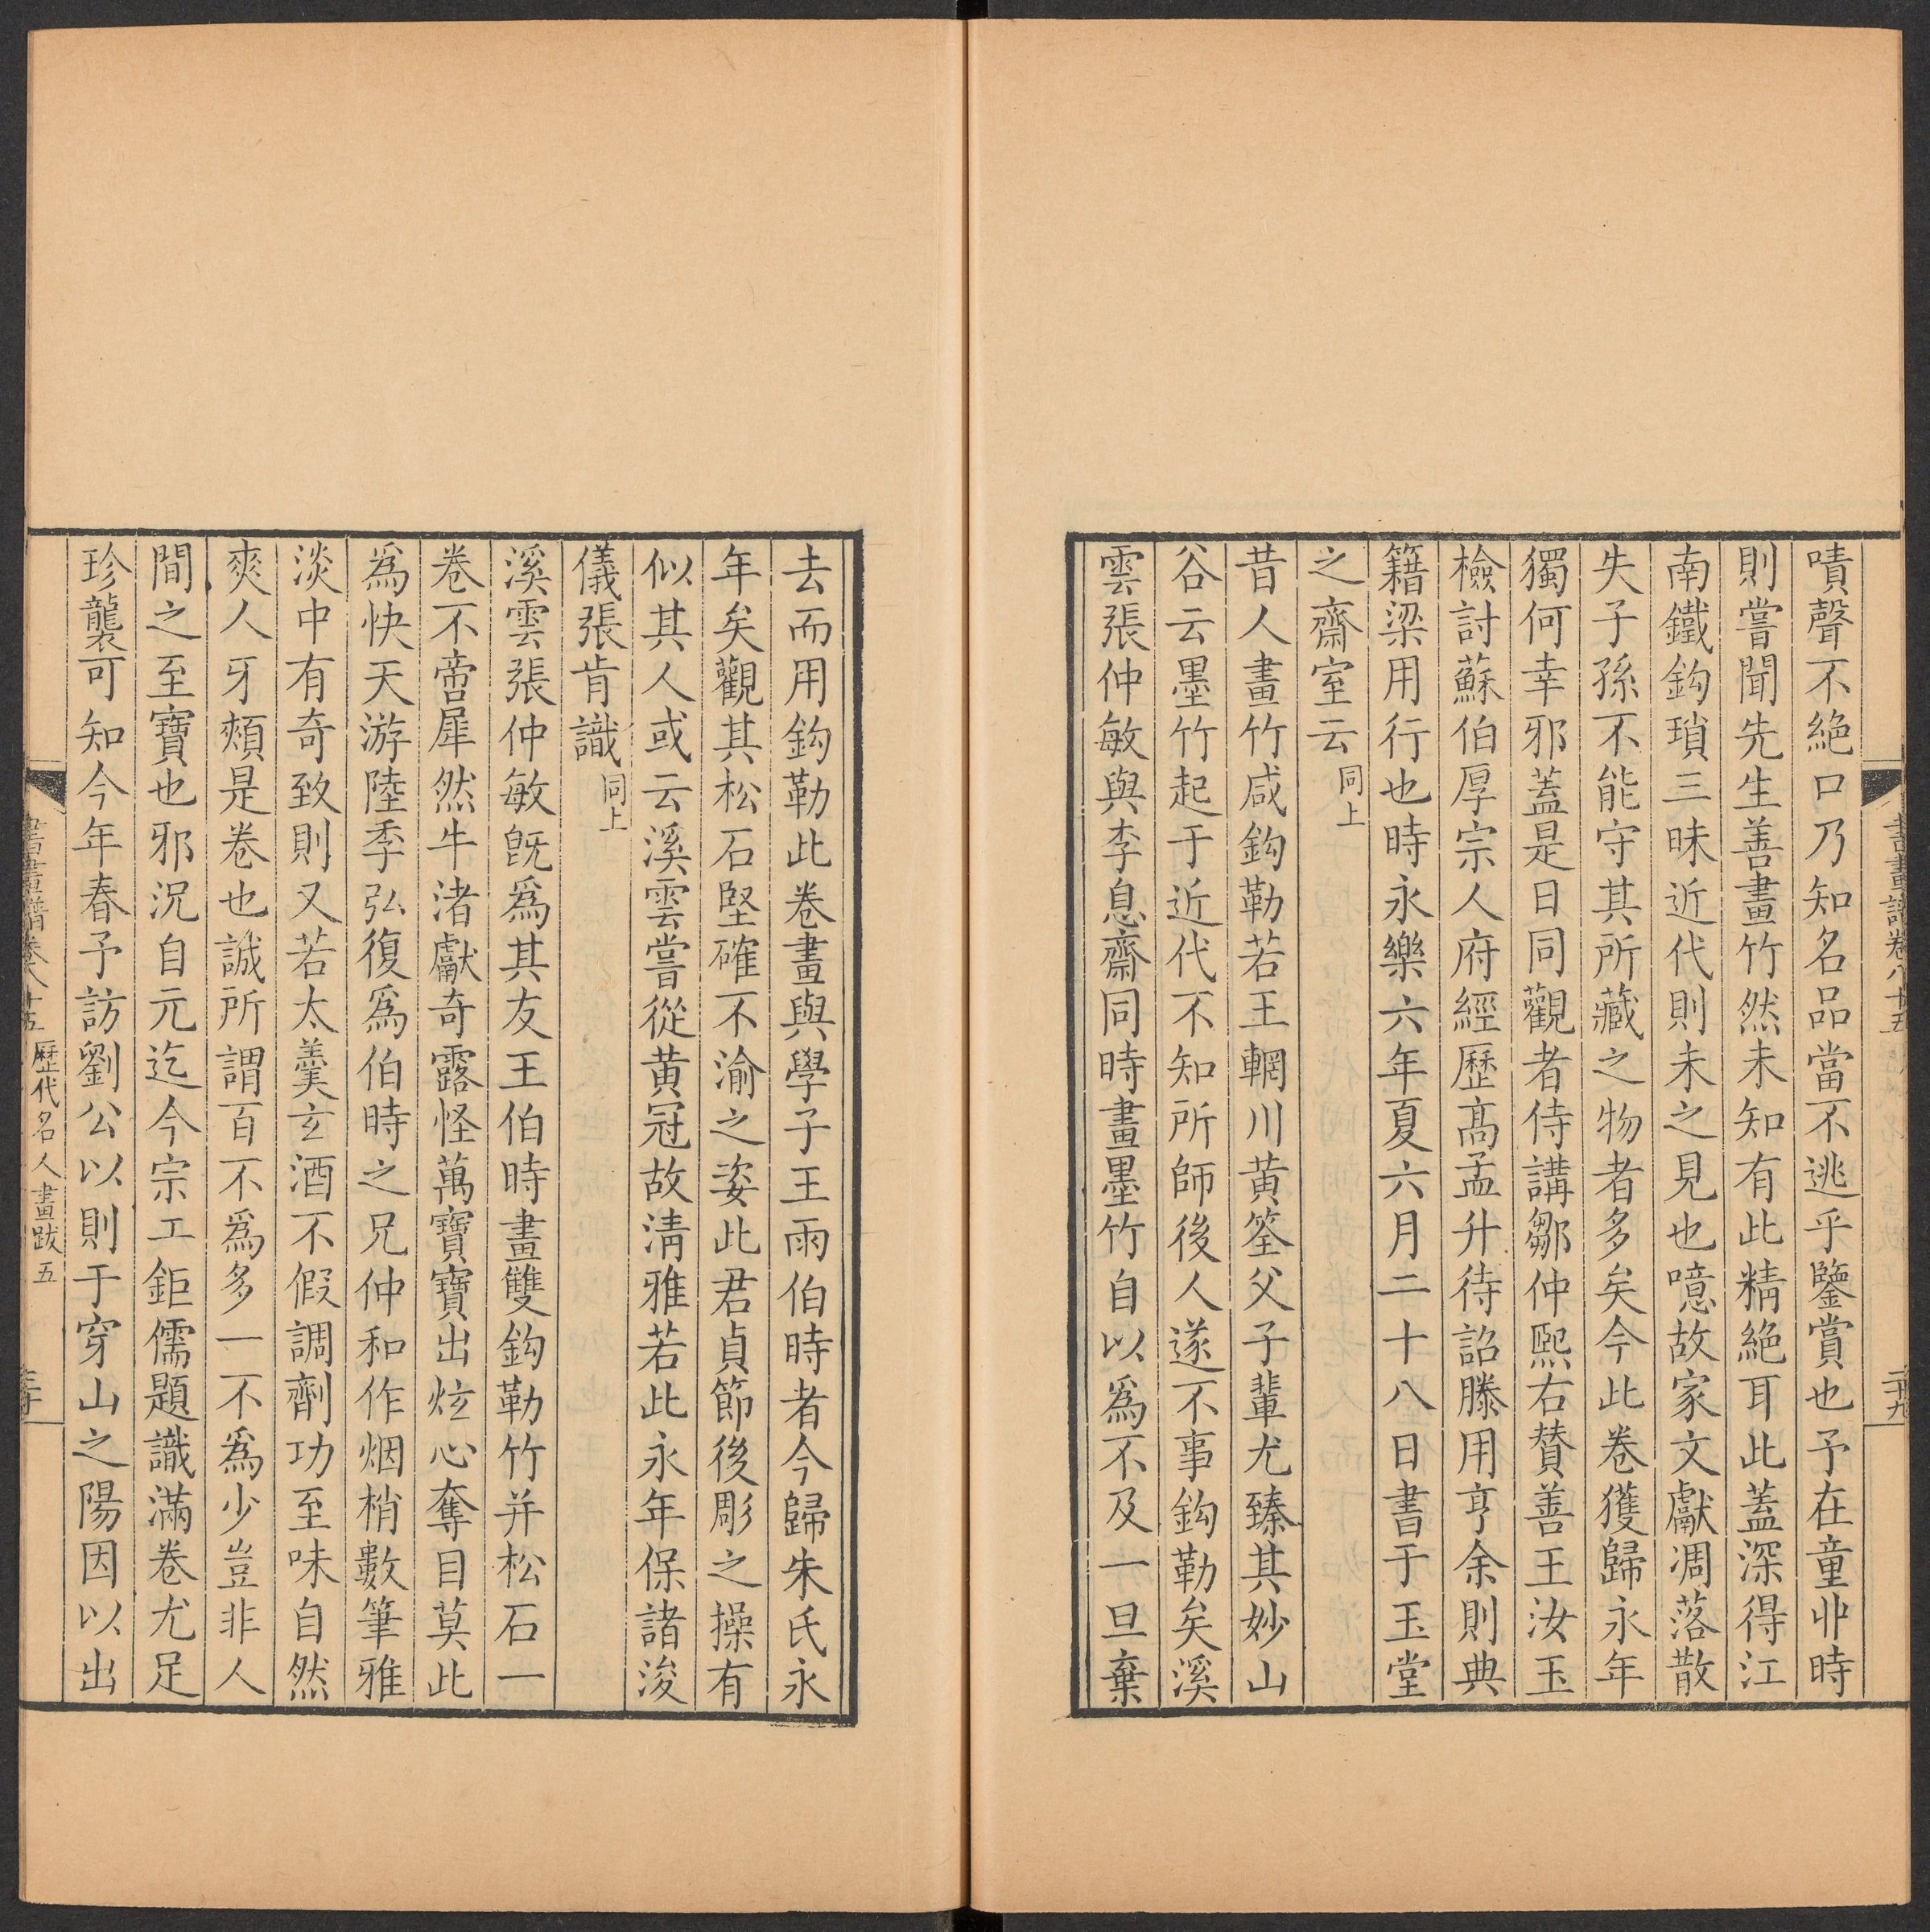 嘖聲不絕口乃知名品當不逃乎鑒賞也予在童丱時
則嘗聞先生善畫竹然未知有此精絕耳此蓋深得江
南鐵鈎瑣三昧近代則未之見也噫故家文獻凋落散
失子孫不能守其所藏之物者多矣今此卷獲歸永年
獨何幸邪蓋是日同觀者侍講鄒仲熙右贊善王汝玉
檢討蘇伯厚宗人府經歷高孟升待詔滕用亨余則典
籍梁用行也時永樂六年夏六月二十八日書于玉堂
之齋室云 同上
昔人畫竹咸鈎勒若王輞川黃筌父子輩尤臻其妙山
谷云墨竹起于近代不知所師後人遂不事鈎勒矣溪
雲張仲敏與李息齋同時畫墨竹自以爲不及一旦棄
去而用鈎勒此卷畫與學子王雨伯時者今歸朱氏永
年矣觀其松石堅確不渝之姿此君貞節後彫之操有
似其人或云溪雲嘗從黃冠故清雅若此永年保諸浚
儀張肯識 同上
溪雲張仲敏旣爲其友王伯時畫雙鈎勒竹并松石一
卷不啻犀然牛渚獻奇露怪萬寶寶出炫心奪目莫此
爲快天游陸季弘復爲伯時之兄仲和作烟梢數筆雅
淡中有奇致則又若太羹玄酒不假調劑功至味自然
爽人牙頰是卷也誠所謂百不爲多一不爲少豈非人
間之至寶也邪況自元迄今宗工鉅儒題識滿卷尤足
珍襲可知今年春予訪劉公以則于穿山之陽因以出
書畫譜卷八十五 歷代名人畫跋五 三十
書畫譜卷八十五 二十九